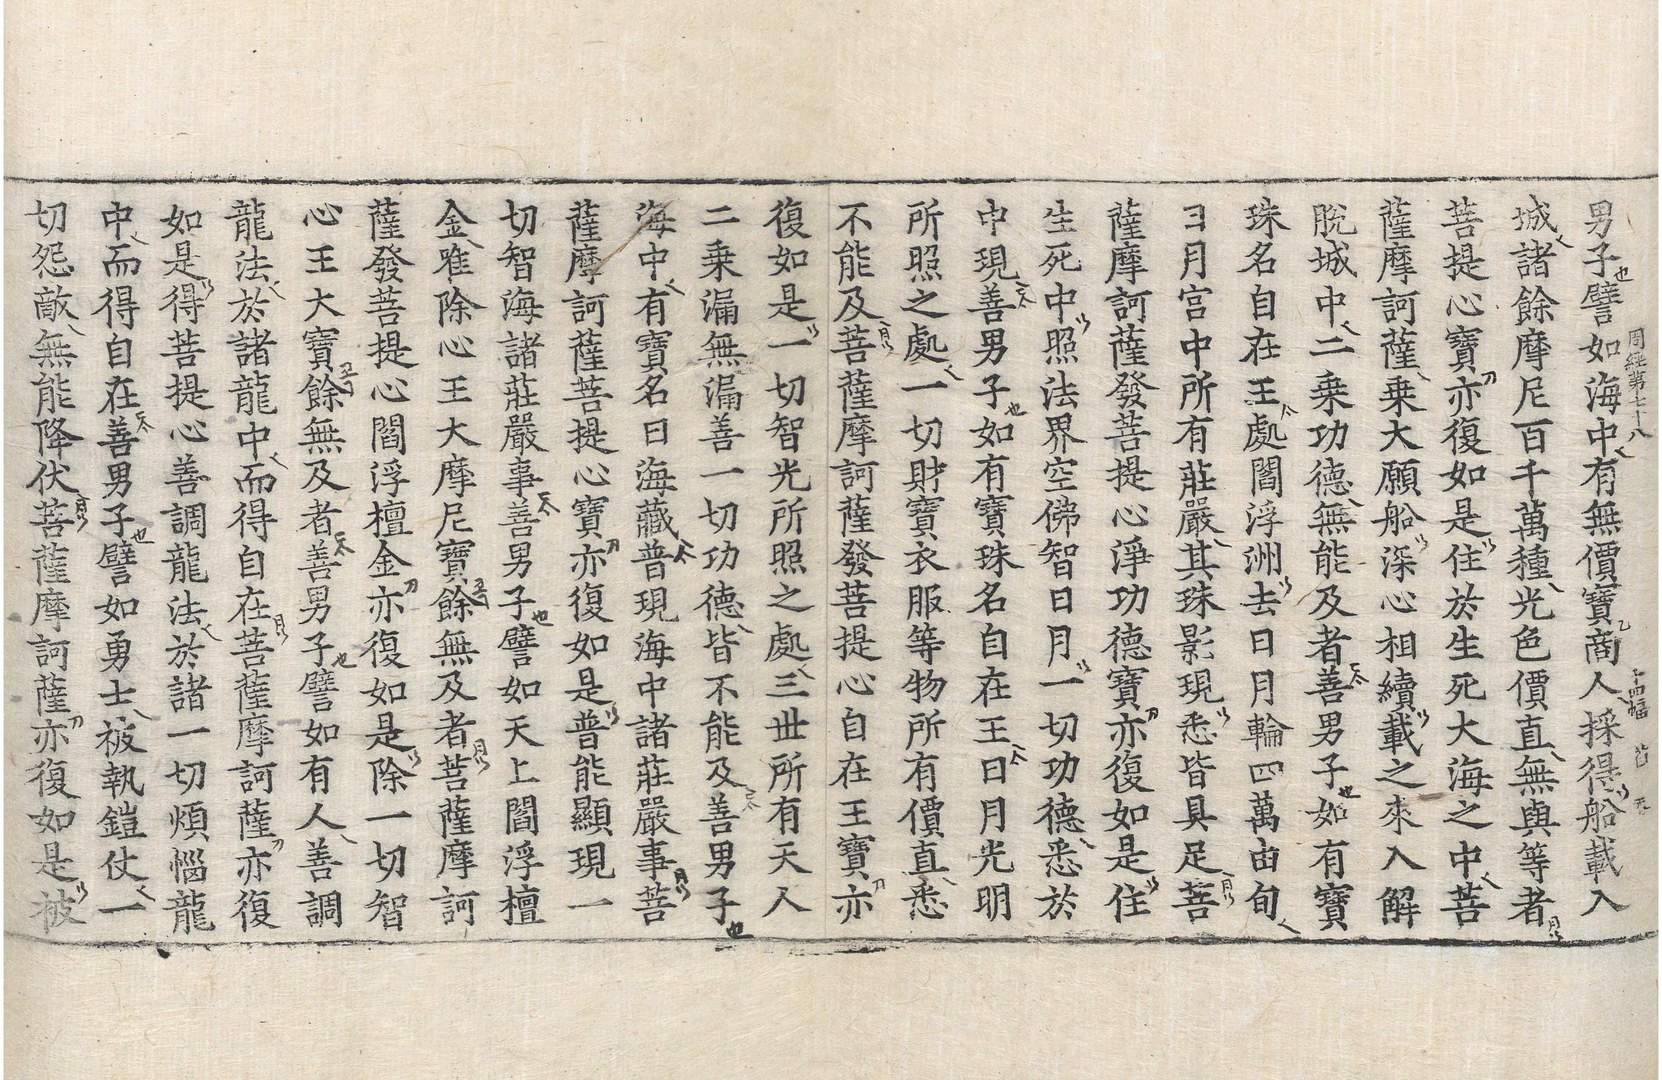 男子譬如海中有無價寶商人採得船載入
周經第七十八
十四幅
城諸餘摩尼百千萬種光色價直無與等者
菩提心寶亦復如是住於生死大海之中菩
薩摩訶薩乘大願船深心相續載之來入解
脫城中二乘功德無能及者善男子如有寶
珠名自在王處閻浮洲去日月輪四萬由旬
日月宮中所有莊嚴其珠影現悉皆具足菩
薩摩訶薩發菩提心淨功德寶亦復如是住
生死中照法界空佛智日月一切功德悉於
中現善男子如有寶珠名自在王日月光明
所照之處一切財寶衣服等物所有價直悉
不能及菩薩摩訶薩發菩提心自在王寶亦
復如是一切智光所照之處三世所有天人
二乘漏無漏善一切功德皆不能及善男子
海中有寶名曰海藏普現海中諸莊嚴事菩
薩摩訶薩菩提心寶亦復如是普能顯現一
切智海諸莊嚴事善男子譬如天上閻浮檀
金唯除心王大摩尼寶餘無及者菩薩摩訶
薩發菩提心閻浮檀金亦復如是除一切智
心王大寶餘無及者善男子譬如有人善調
龍法於諸龍中而得自在菩薩摩訶薩亦復
如是得菩提心善調龍法於諸一切煩惱龍
中而得自在善男子譬如勇士被執鎧仗一
切怨敵無能降伏菩薩摩訶薩亦復如是被